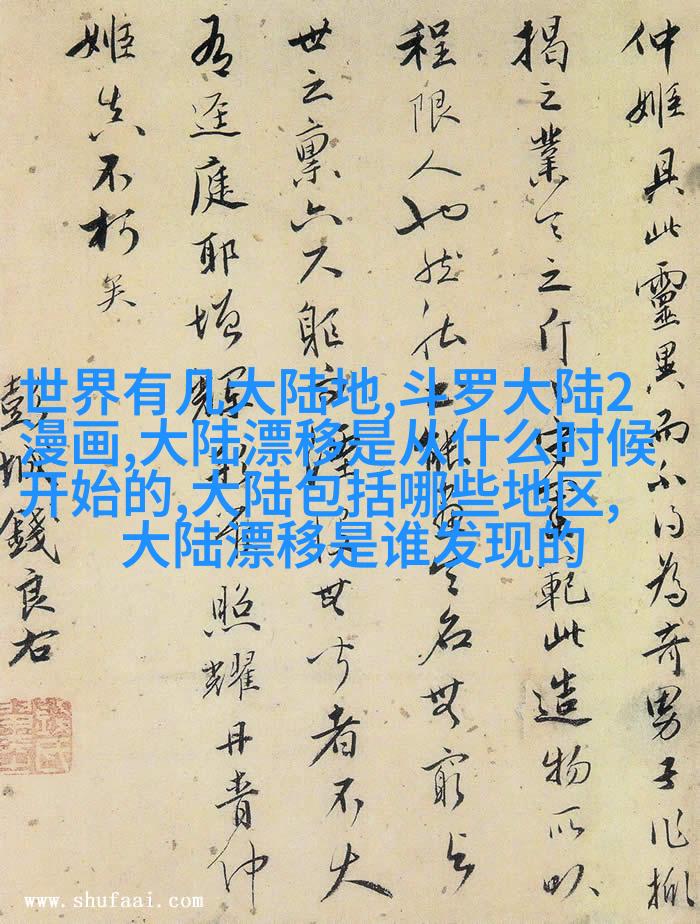 仲姬具此靈異而不得為奇男子作掀
揭之業天之
範此造物所以
程限人也然法
名無窮與
世之稟六尺軀
無聞者不大
有逕庭耶增輝
照耀丹青仲
姬真不朽矣
彭城錢良右
世界有几大陆地,斗罗大陆2
漫画,大陆漂移是从什么时候
开始的,大陆包括哪些地区,
大陆漂移是谁发现的
www.shufaai.com